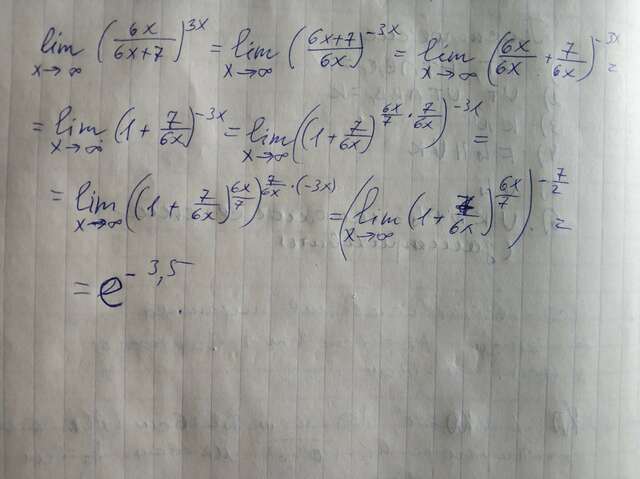 lim x→∞ (6x/(6x+7))^3x = lim x→∞ ((6x+7)/6x)^-3x = lim x→∞ (6x/6x + 7/6x)^-3x =
= lim x→∞ (1 + 7/6x)^-3x = lim x→∞ ((1 + 7/6x)^(6x/7 · 7/6x))^-3x =
= lim x→∞ ((1 + 7/6x)^(6x/7))^(7/6x · (-3x)) = (lim x→∞ (1 + 7/6x)^(6x/7))^(-7/2) =
= e^-3,5